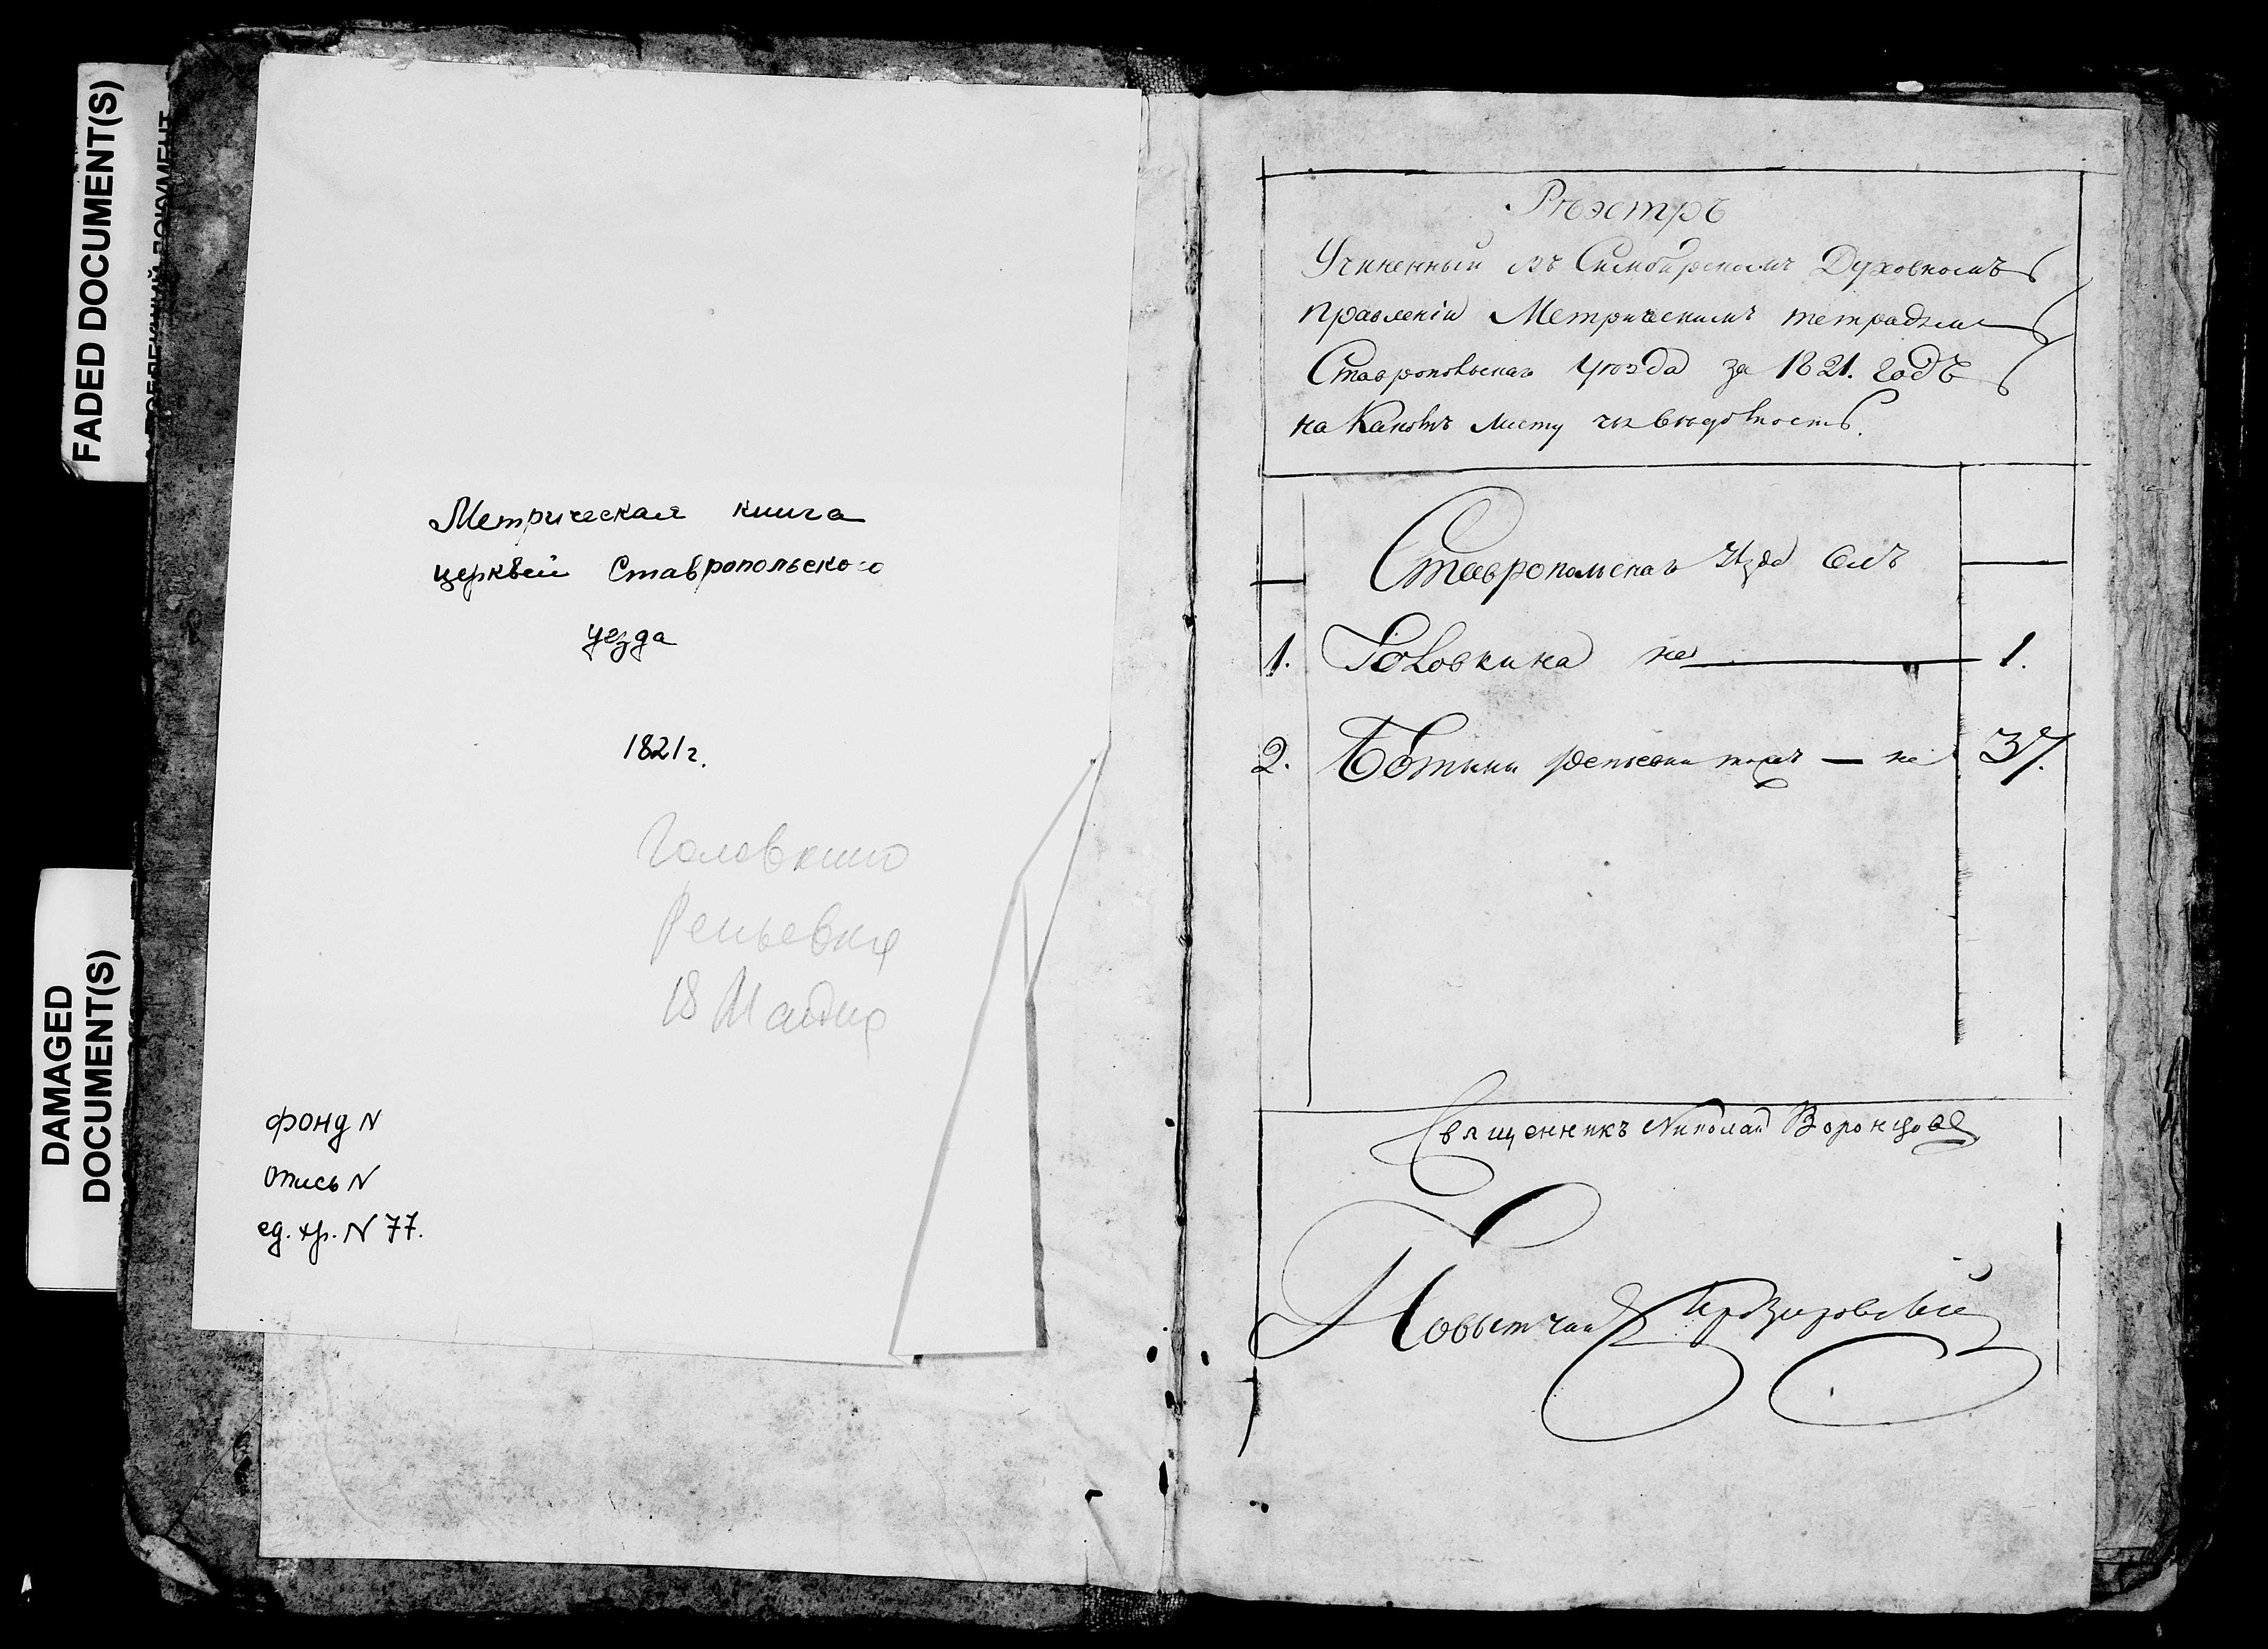 FADED DOCUMENT(S)
DAMAGED
DOCUMENT(S)
Метрическая книга
церквей Ставропольского
уезда
1821г.
Головкино
Репьевка
фонд N
опись N
ед. хр. N 77.
Рѣэстръ
Учиненный въ Симбирскомъ Духовномъ
правленіи Метрическимъ тетрадямъ
Ставропольскаго уѣзда за 1821. годъ
на какомъ листу чья вѣдомость.
Ставропольскаго уѣзда селъ
1. Головкина на 1.
2. репьевки тожъ на 37.
Священникъ Николай Воронцовъ
Повытчикъ